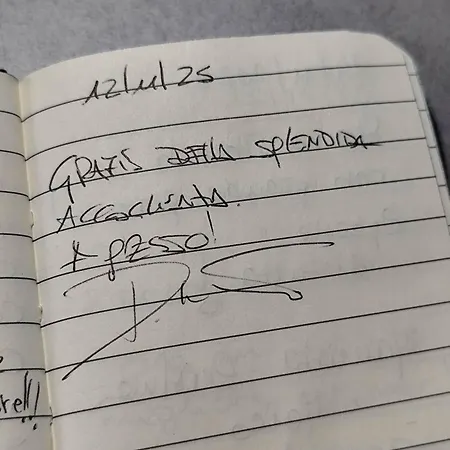 12/11/25
GRAZIE DELLA SPLENDIDA
ACCOGLIENZA.
A PRESTO!
re!!!